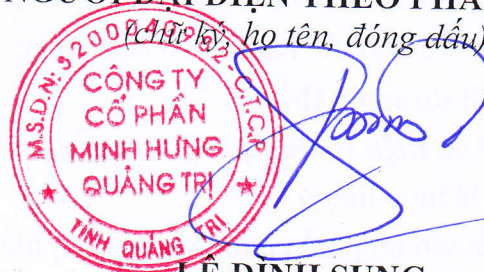 NGƯỜI ĐẠI DIỆN THEO PHÁ
(chữ ký, họ tên, đóng dấu)
CÔNG TY
CỔ PHẦN
MINH HƯNG
QUẢNG TRỊ
TỈNH QUẢNG TRỊ
LÊ ĐÌNH SUNG